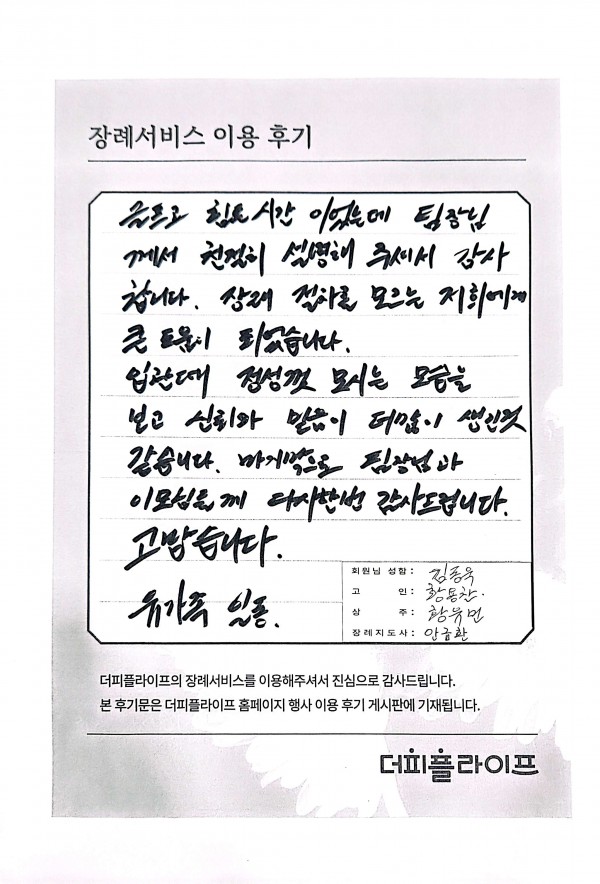 장례서비스 이용 후기
글프고 힘든 시간 이었는데 팀장님
께서 친절히 설명해 주셔서 감사
합니다. 장례 절차를 모르는 저희에게
큰 도움이 되었습니다.
입관때 정성껏 모시는 모습을
보고 신뢰와 믿음이 더많이 생긴것
같습니다. 마지막으로 팀장님과
이모님들께 다시한번 감사드립니다.
고맙습니다.
유가족 일동.
회원님 성함 : 김종욱
고 인 : 황동찬.
상 주 : 황유먼
장례지도사 : 안금환
더피플라이프의 장례서비스를 이용해주셔서 진심으로 감사드립니다.
본 후기문은 더피플라이프 홈페이지 행사 이용 후기 게시판에 기재됩니다.
더피플라이프